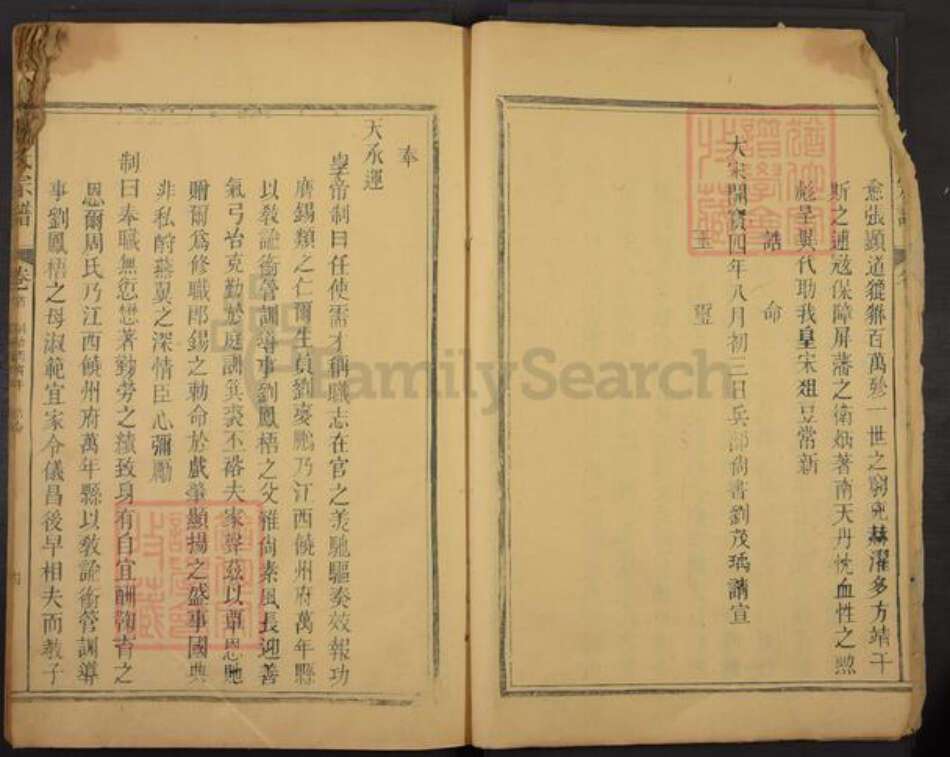 愈張顯道貔貅百萬殄一世之窮兇赫濯多方靖干
斯之逋寇保障屏藩之衛炳著南天丹忱血性之烈
彪呈異代助我皇宋俎豆常新
誥命
大宋開寶四年八月初三日兵部尚書劉茂瑀請宣
玉璽
奉
天承運
皇帝制曰任使需才稱職志在官之美馳驅奏效報功
膺錫類之仁爾生員劉夢鵬乃江西饒州府萬年縣
以教諭銜管訓導事劉鳳梧之父雅尚素風長迎善
氣弓冶克勤於庭訓箕裘丕裕夫家聲茲以覃恩馳
贈爾為修職郎錫之勅命於戲榮顯揚之盛事國典
非私酌燕翼之深情臣心彌勵
制曰奉職無愆懋著勤勞之績致身有自宜酬鞠育之
恩爾周氏乃江西饒州府萬年縣以教諭銜管訓導
事劉鳳梧之母淑範宜家令儀昌後早相夫而教子
宗譜
卷
FamilySearch